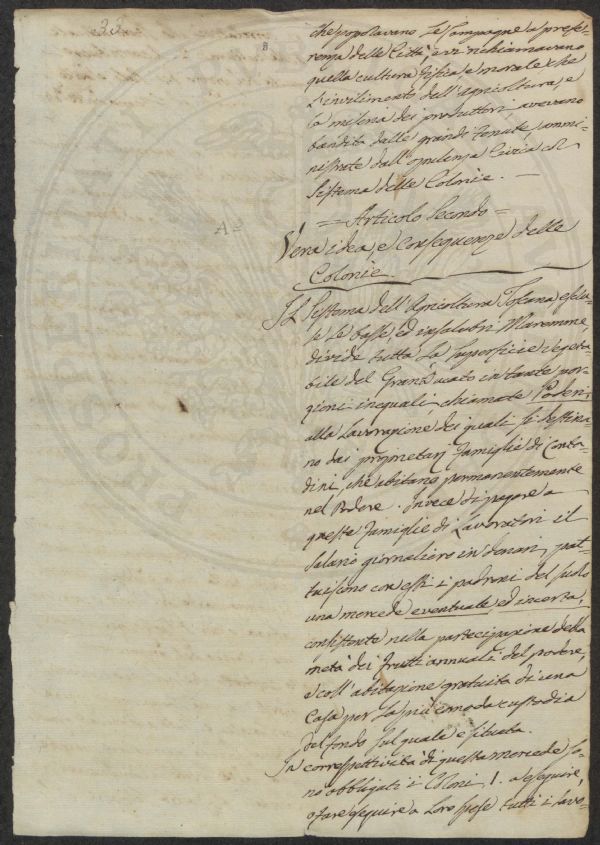 33
8
che popolavano le Campagne a prefe-
renza delle Città, e vi richiamavano
quella cultura fisica e morale che
l'invilimento dell'Agricoltura, e
la miseria dei produttori avevano
bandita dalle grandi tenute, ammi-
nistrate dall'opulenza Civica col
sistema delle Colonie. —
= Articolo Secondo =
Vera idea, e Conseguenze delle
Colonie.
Il Sistema dell'Agricoltura Toscana esclu-
se le basse, ed insalubri Maremme,
divide tutta la superficie vegeta-
bile del Granducato in tante por-
zioni ineguali, chiamate Poderi,
alla lavorazione dei quali si destina-
no dai proprietarj Famiglie di Conta-
dini, che abitano permanentemente
nel Podere. Invece di pagare a
queste Famiglie di Lavoratori il
salario giornaliero in denari, pat-
tuiscono con essi i padroni del suolo
una mercede eventuale, ed incerta,
consistente nella partecipazione della
metà dei frutti annuali del podere,
e coll'abitazione gratuita di una
Casa per la più comoda custodia
del fondo sul quale è situata.
In correspettività di questa mercede so-
no obbligati i Coloni, 1. a eseguire,
o fare eseguire a loro spese tutti i lavo-